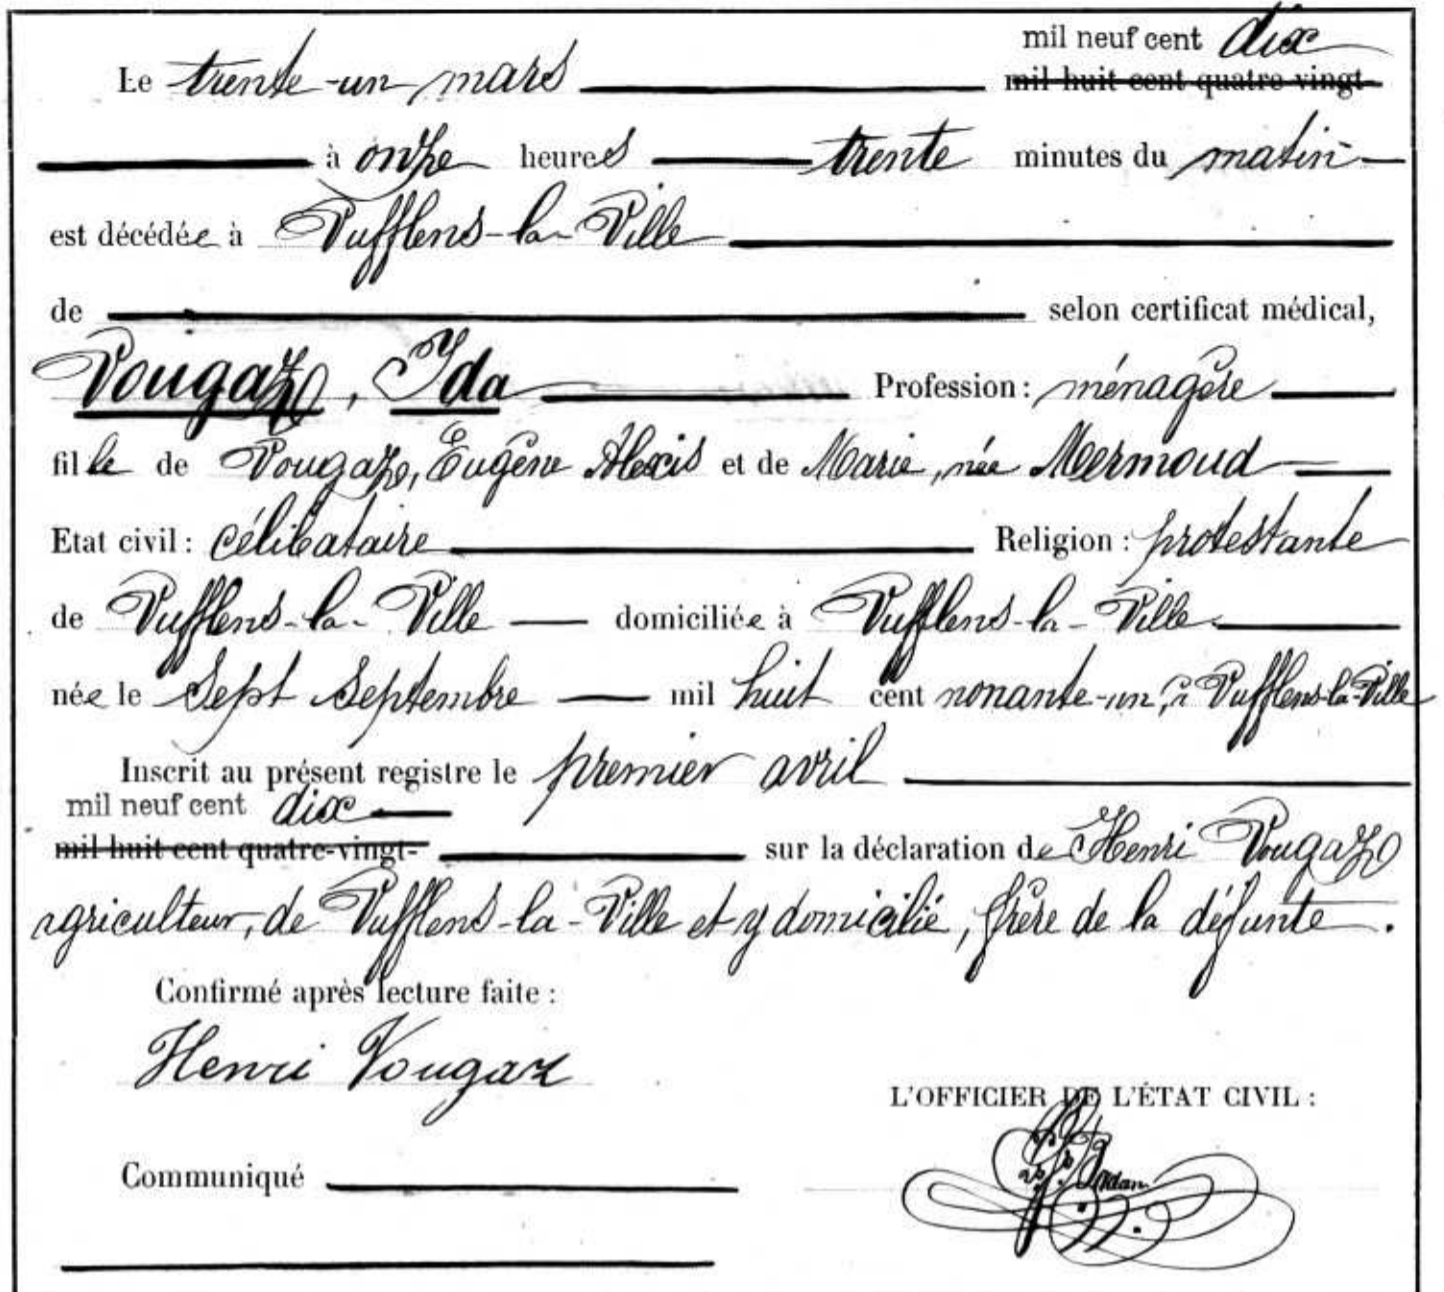 mil neuf cent dix
Le trente-un mars mil huit cent quatre-vingt-
à onze heures trente minutes du matin
est décédée à Vufflens-la-Ville
de selon certificat médical,
Vougaz, Ida Profession : ménagère
fille de Vougaz, Eugène Alexis et de Marie, née Mermoud
Etat civil : célibataire Religion : protestante
de Vufflens-la-Ville domiciliée à Vufflens-la-Ville
née le sept septembre mil huit cent nonante-un, à Vufflens-la-Ville
Inscrit au présent registre le premier avril
mil neuf cent dix
mil huit cent quatre-vingt- sur la déclaration de Henri Vougaz
agriculteur, de Vufflens-la-Ville et y domicilié, frère de la défunte.
Confirmé après lecture faite :
Henri Vougaz
L'OFFICIER DE L'ÉTAT CIVIL :
Communiqué